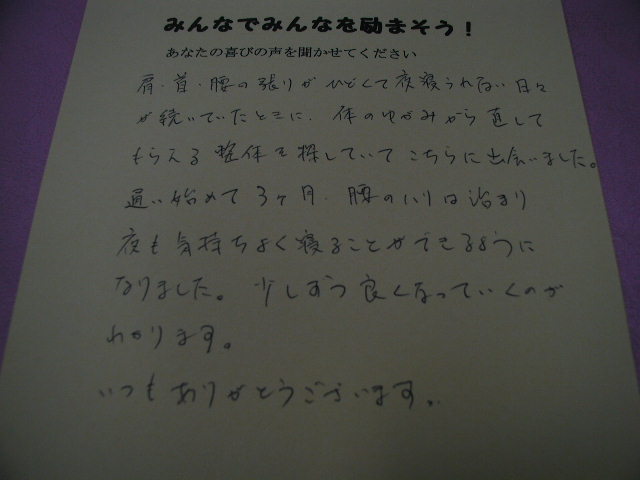 みんなでみんなを励まそう！
あなたの喜びの声を聞かせてください
肩・首・腰の張りがひどくて夜寝られない日々
が続いていたときに、体のゆがみから直して
もらえる整体を探していてこちらに出会いました。
通い始めて3ヶ月、腰のハリは治まり
夜も気持ちよく寝ることができるように
なりました。少しずつ良くなっていくのが
わかります。
いつもありがとうございます。